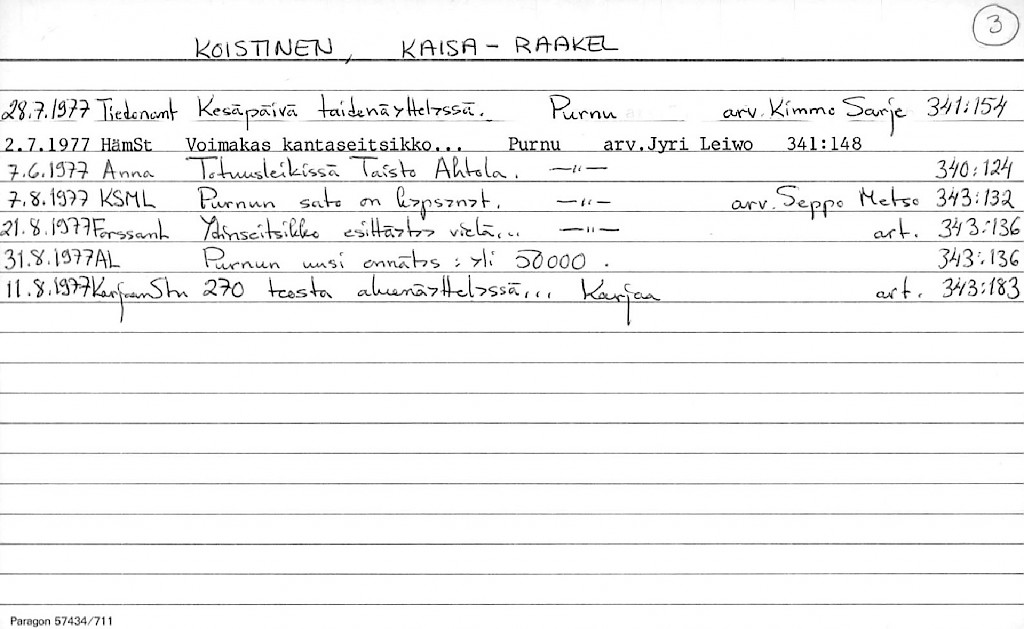 3
KOISTINEN, KAISA - RAAKEL
28.7.1977 Tiedonant Kesäpäivä taidenäyttelyssä. Purnu arv. Kimmo Sarje 341:154
2.7.1977 HämSt Voimakas kantaseitsikko... Purnu arv.Jyri Leiwo 341:148
7.6.1977 Anna Totuusleikissä Taisto Ahtola. —"— 340:124
7.8.1977 KSML Purnun sato on kypsynyt. —"— arv. Seppo Metso 343:132
21.8.1977 Forssanl Ydinseitsikko esittäytyy vielä... —"— art. 343:136
31.8.1977 AL Purnun uusi ennätys : yli 50000 . 343:136
11.8.1977 KarjaanStn 270 teosta aluenäyttelyssä... Karjaa art. 343:183
Paragon 57434/711